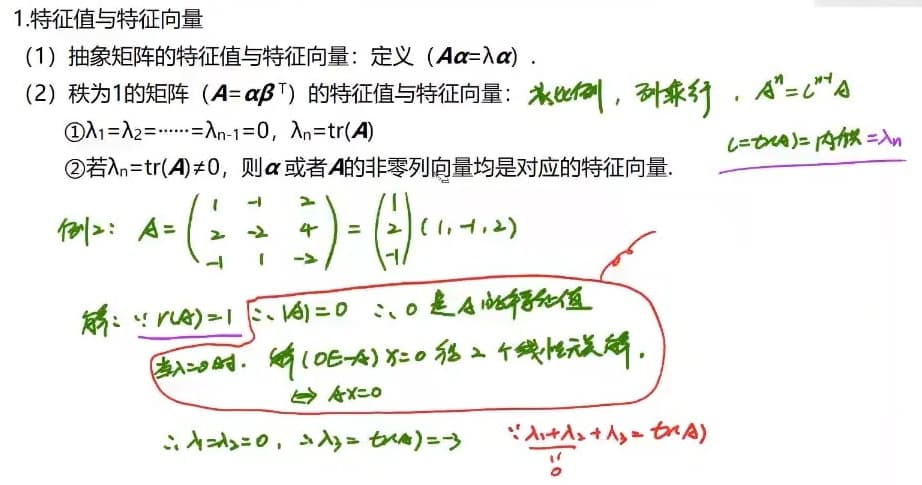 1.特征值与特征向量
（1）抽象矩阵的特征值与特征向量：定义（Aα=λα）.
（2）秩为1的矩阵（A=αβᵀ）的特征值与特征向量：成比例，列乘行．Aⁿ=Cⁿ⁻¹A
①λ₁=λ₂=……=λₙ₋₁=0，λₙ=tr(A)
C=tr(A)=内积=λₙ
②若λₙ=tr(A)≠0，则α或者A的非零列向量均是对应的特征向量.
例2： A= ( 1 -1 2
2 -2 4
-1 1 -2 ) = ( 1 2 -1 ) (1,-1,2)
解：∵r(A)=1 ∴|A|=0 ∴0是A的特征值
当λ=0时．解(0E-A)x=0得2个线性无关解．
⇔ Ax=0
∴λ₁=λ₂=0，∴λ₃=tr(A)=-3 ∵λ₁+λ₂+λ₃=tr(A)
=
0